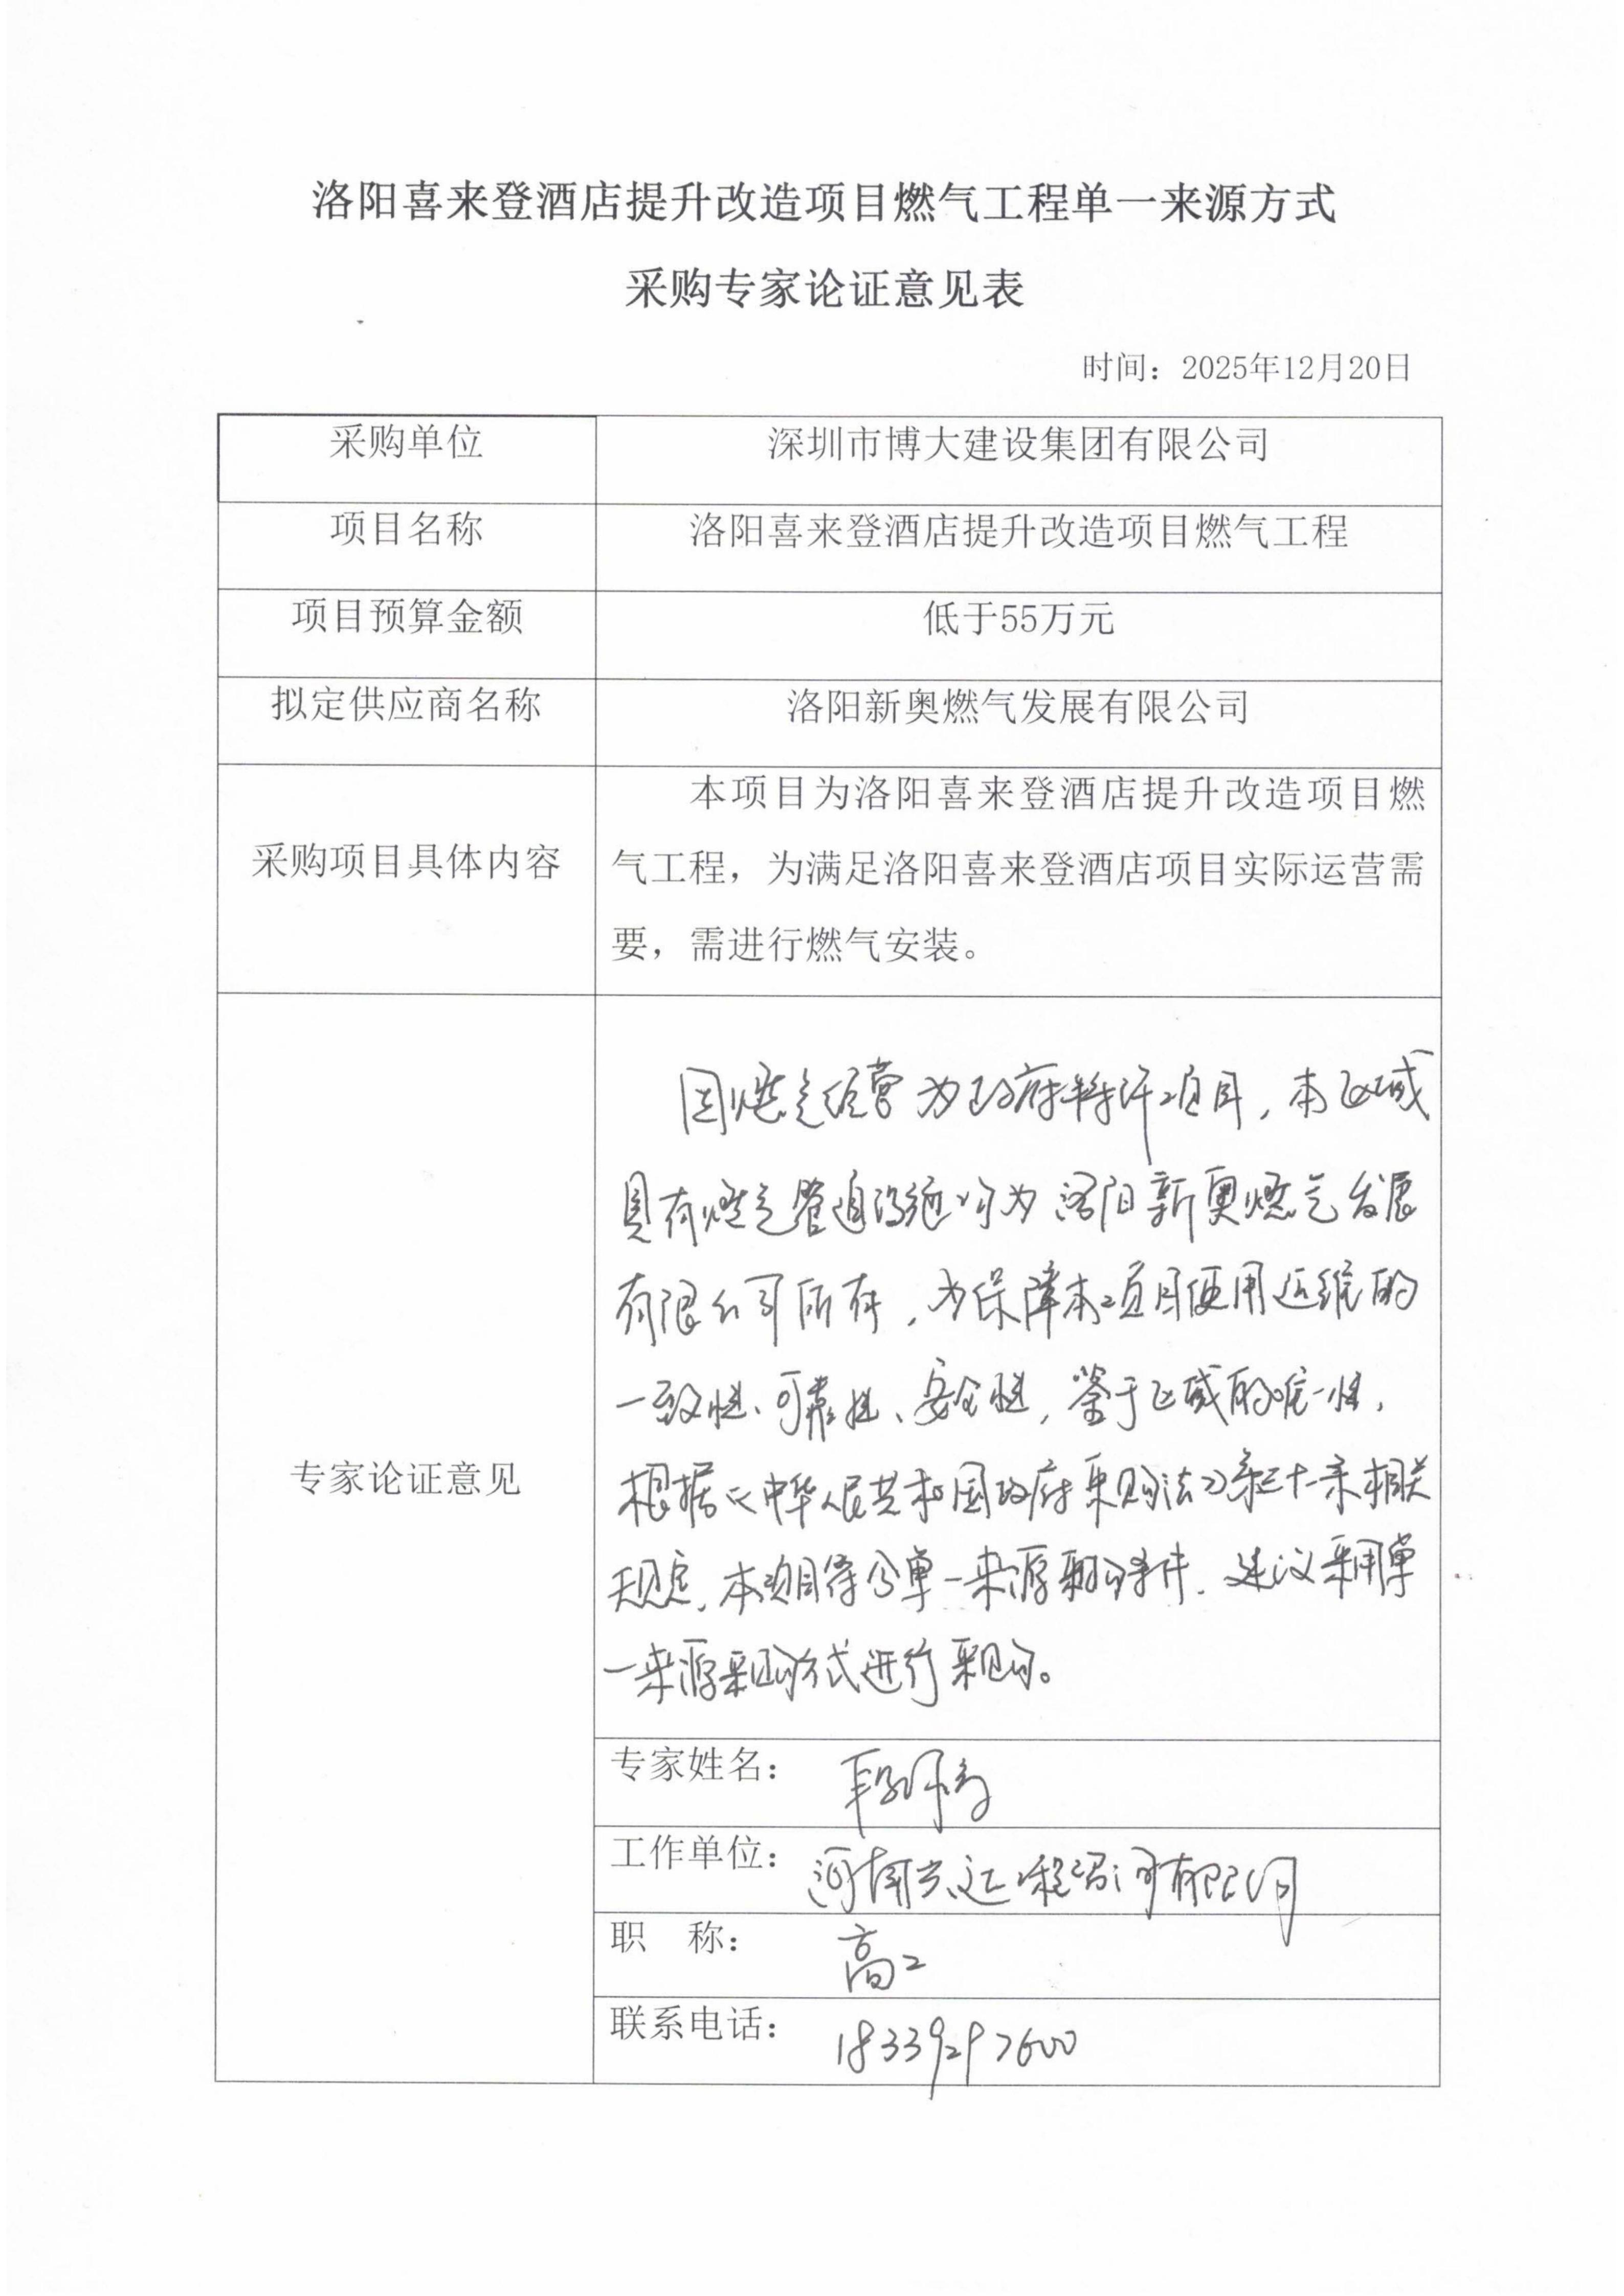 洛阳喜来登酒店提升改造项目燃气工程单一来源方式
采购专家论证意见表
时间：2025年12月20日
采购单位
深圳市博大建设集团有限公司
项目名称
洛阳喜来登酒店提升改造项目燃气工程
项目预算金额
低于55万元
拟定供应商名称
洛阳新奥燃气发展有限公司
采购项目具体内容
本项目为洛阳喜来登酒店提升改造项目燃
气工程，为满足洛阳喜来登酒店项目实际运营需
要，需进行燃气安装。
专家论证意见
因燃气经营为政府特许项目，本区域
具有燃气管道设施均为洛阳新奥燃气发展
有限公司所有，为保障本项目使用运维的
一致性、可靠性、安全性，鉴于区域的唯一性，
根据《中华人民共和国政府采购法》第三十一条相关
规定，本项目符合单一来源采购条件，建议采用单
一来源采购方式进行采购。
专家姓名：段
工作单位：河南 工程咨询有限公司
职 称：高工
联系电话：18339297600